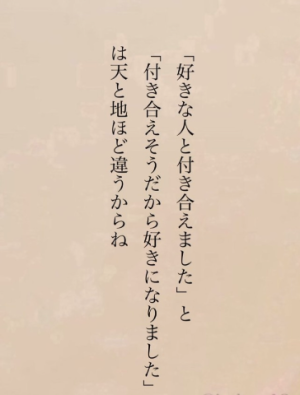 「好きな人と付き合えました」と
「付き合えそうだから好きになりました」
は天と地ほど違うからね